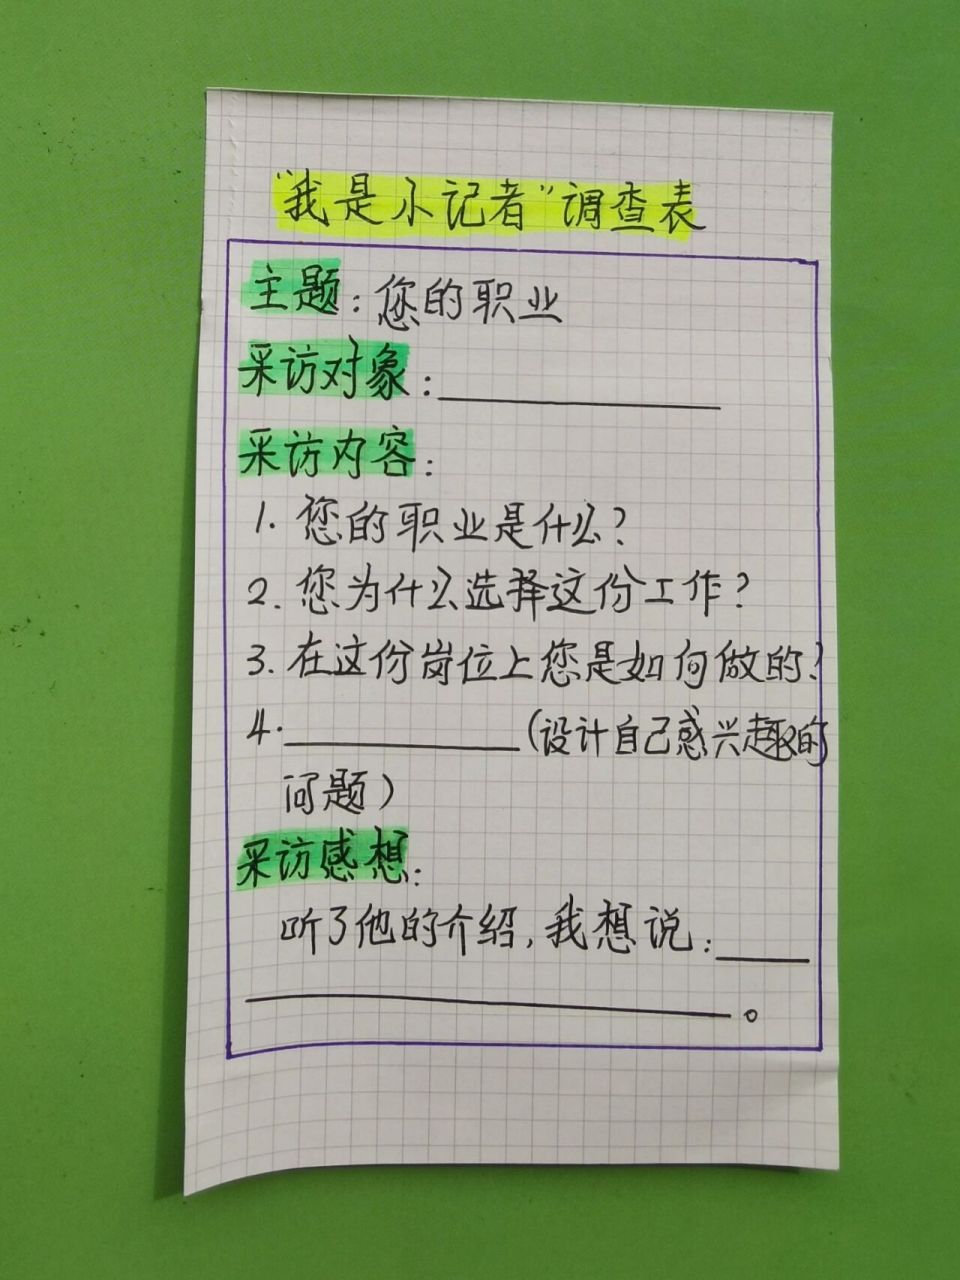 “我是小记者”调查表
主题:您的职业
采访对象:
采访内容:
1. 您的职业是什么?
2. 您为什么选择这份工作?
3. 在这份岗位上您是如何做的?
4. (设计自己感兴趣的
问题)
采访感想:
听了他的介绍,我想说:
。